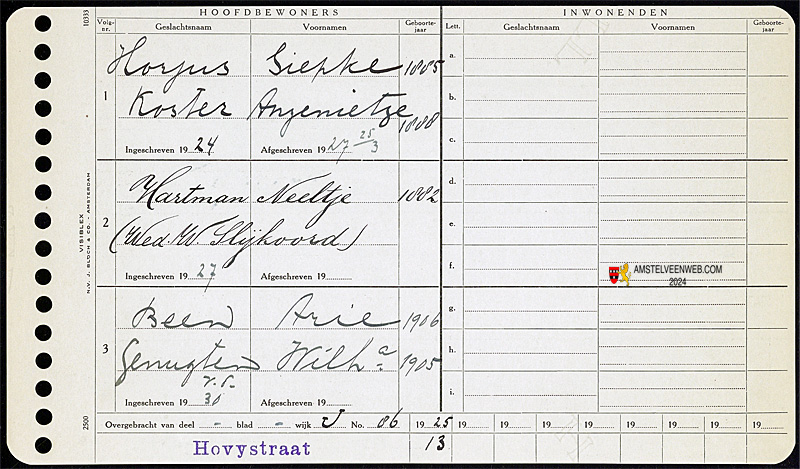 HOOFDBEWONERS INWONENDEN
Volg-nr. Geslachtsnaam Voornamen Geboorte-jaar Lett. Geslachtsnaam Voornamen Geboorte-jaar
10333
Horjus Siepke 1885 a.
1 Koster Anjenietje 1888 b.
Ingeschreven 19 24 Afgeschreven 19 27 25/3 c.
Hartman Neeltje 1882 d.
2 (Wed. W. Slijkoord) e.
Ingeschreven 19 27 Afgeschreven 19 f.
AMSTELVEENWEB.COM
2024
Been Arie 1906 g.
3 Genugten Wilh a 1905 h.
v.d.
Ingeschreven 19 30 Afgeschreven 19 i.
VISIBLEX
N.V. J. BLOCH & CO. - AMSTERDAM
2500
Overgebracht van deel - blad - wijk J No. 86 19 25 19 19 19 19 19 19 19
Hovystraat 13